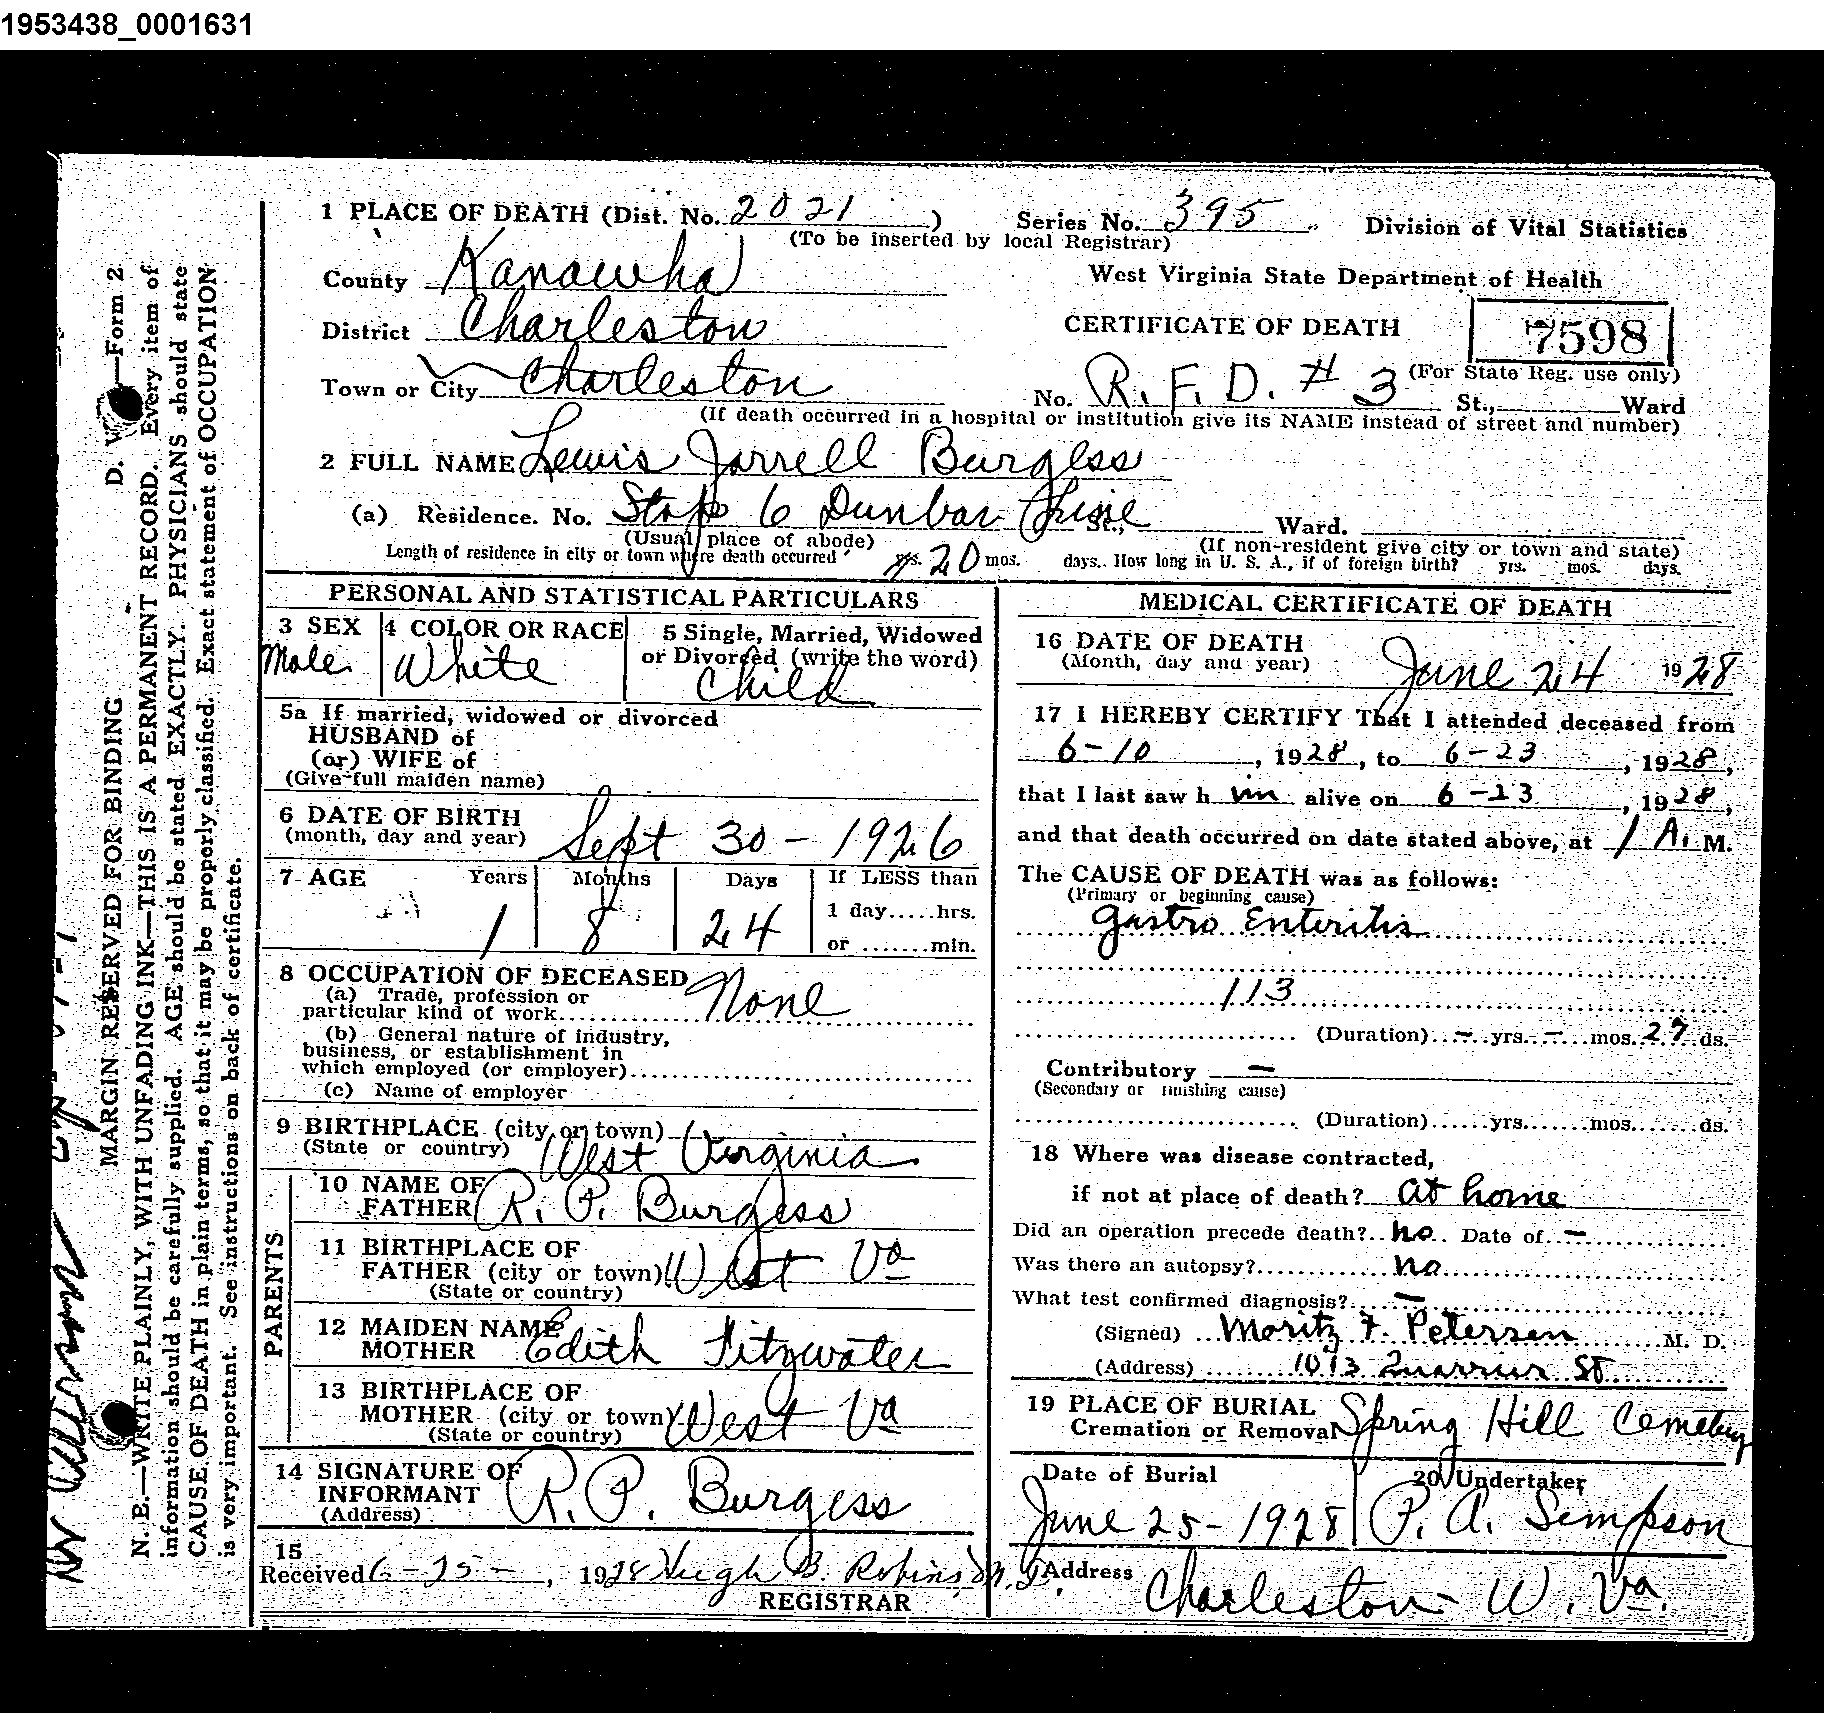 1953438_0001631
1 PLACE OF DEATH (Dist. No. 2021 ) Series No. 395 Division of Vital Statistics
(To be inserted by local Registrar)
County Kanawha West Virginia State Department of Health
District Charleston CERTIFICATE OF DEATH 7598
(For State Reg. use only)
Town or City Charleston No. R.F.D. # 3 St., Ward
(If death occurred in a hospital or institution give its NAME instead of street and number)
2 FULL NAME Lewis Jarrell Burgess
(a) Residence. No. Stop 6 Dunbar Line St., Ward.
(Usual place of abode) (If non-resident give city or town and state)
Length of residence in city or town where death occurred yrs. 20 mos. days. How long in U. S. A., if of foreign birth? yrs. mos. days.
PERSONAL AND STATISTICAL PARTICULARS
3 SEX 4 COLOR OR RACE 5 Single, Married, Widowed
or Divorced (write the word)
Male White Child
5a If married, widowed or divorced
HUSBAND of
(or) WIFE of
(Give full maiden name)
6 DATE OF BIRTH
(month, day and year) Sept 30 - 1926
7 AGE Years Months Days If LESS than
1 day.....hrs.
1 8 24 or .......min.
8 OCCUPATION OF DECEASED
(a) Trade, profession or
particular kind of work None
(b) General nature of industry,
business, or establishment in
which employed (or employer)
(c) Name of employer
9 BIRTHPLACE (city or town)
(State or country) West Virginia
PARENTS
10 NAME OF
FATHER R. P. Burgess
11 BIRTHPLACE OF
FATHER (city or town) West Va
(State or country)
12 MAIDEN NAME
MOTHER Edith Fitzwater
13 BIRTHPLACE OF
MOTHER (city or town) West Va
(State or country)
14 SIGNATURE OF
INFORMANT R. P. Burgess
(Address)
15
Received 6-25-, 1928 Hugh B. Robins
REGISTRAR
MEDICAL CERTIFICATE OF DEATH
16 DATE OF DEATH
(Month, day and year) June 24 1928
17 I HEREBY CERTIFY That I attended deceased from
6-10, 1928, to 6-23, 1928,
that I last saw h im alive on 6-23, 1928,
and that death occurred on date stated above, at 1 A. M.
The CAUSE OF DEATH was as follows:
(Primary or beginning cause)
Gastro Enteritis
113
(Duration) - yrs. - mos. 27 ds.
Contributory -
(Secondary or finishing cause)
(Duration) yrs. mos. ds.
18 Where was disease contracted,
if not at place of death? at home
Did an operation precede death? no Date of -
Was there an autopsy? no
What test confirmed diagnosis? -
(Signed) Moritz F. Petersen M. D.
(Address) 1013 Quarrier St
19 PLACE OF BURIAL
Cremation or Removal Spring Hill Cemetery
Date of Burial 20 Undertaker
June 25-1928 P. A. Simpson
Address
Charleston W. Va.
D. V. —Form 2
MARGIN RESERVED FOR BINDING
N. B.—WRITE PLAINLY, WITH UNFADING INK—THIS IS A PERMANENT RECORD. Every item of
information should be carefully supplied. AGE should be stated EXACTLY. PHYSICIANS should state
CAUSE OF DEATH in plain terms, so that it may be properly classified. Exact statement of OCCUPATION
is very important. See instructions on back of certificate.